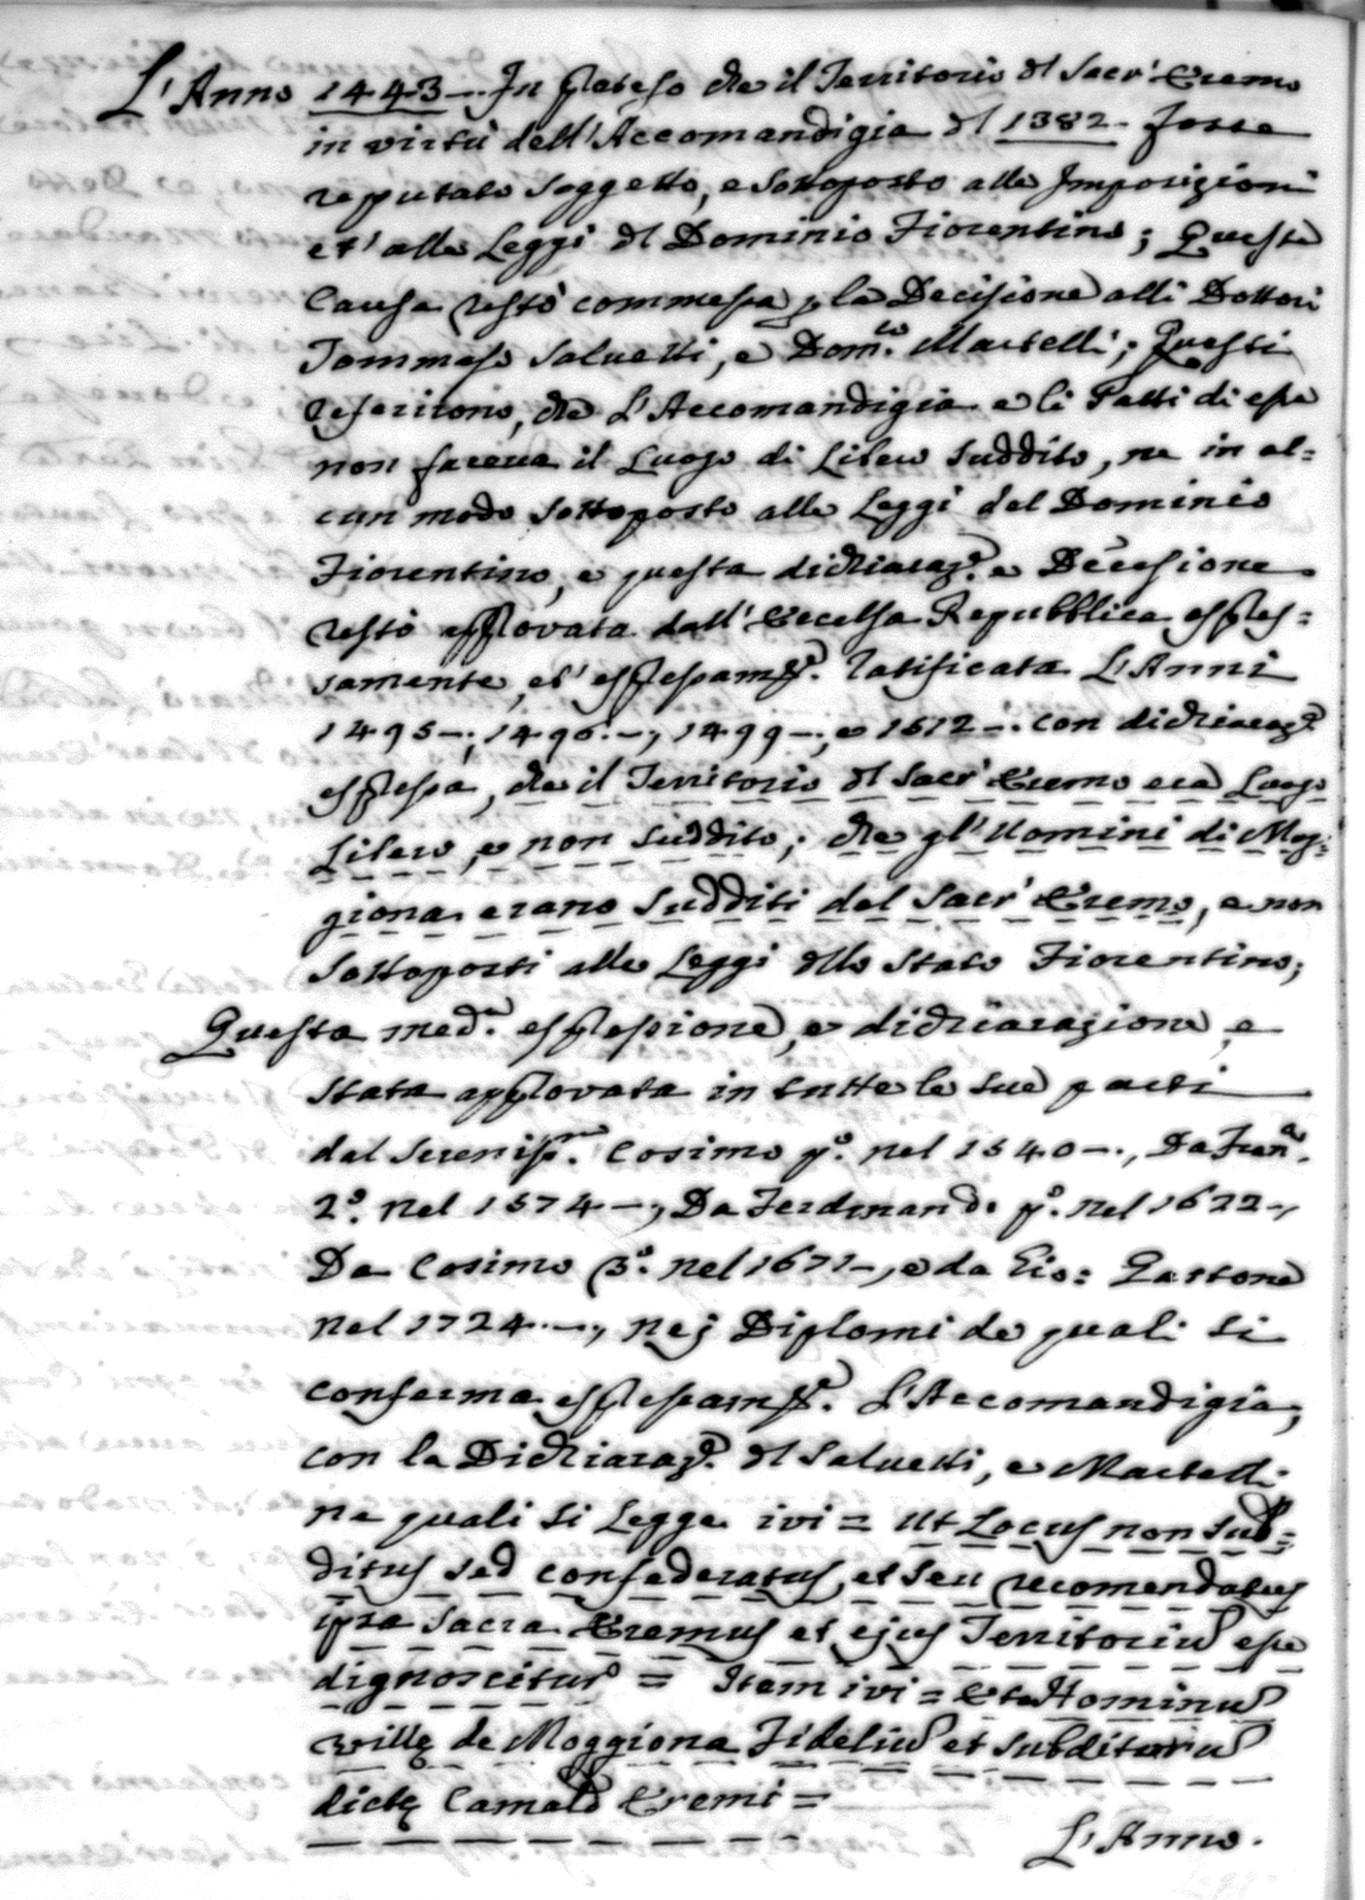 L'Anno 1443 -. Fu preteso che il Territorio dl Sacr' Eremo
in virtù dell'Accomandigia dl 1382 - fosse
reputato soggetto, e sottoposto alle Imposizioni
et' alle Leggi dl Dominio Fiorentino; Questa
Causa restò commessa p la Decisione alli Dottori
Tommaso Salvetti, e Dom.co Martelli; Questi
referirono, che L'Accomandigia e li Patti di essa
non faceva il Luogo di Libero Suddito, ne in al=
cun modo sottoposto alle Leggi del Dominio
Fiorentino, e questa dichiaraz.e e Decesione
restò approvata dall' Eccelsa Repubblica espres=
samente, et' espressam.te ratificata L'Anni
1495 -; 1496. -, 1499 -; e 1512 -. con dichiaraz.e
espressa, che il Territorio dl Sacr' Eremo era Luogo
Libero, e non suddito; che gl' Uomini di Mog=
giona erano Sudditi del Sacr' Eremo, e non
sottoposti alle Leggi dllo Stato Fiorentino;
Questa med.a espressione, e dichiarazione, e
stata approvata in tutte le sue parti
dal Sereniss.mo Cosimo p.o nel 1540 -., Da Fran.co
2.o nel 1574 -, Da Ferdinando p.o nel 1622 -,
Da Cosimo 3.o nel 1671 -, e da Gio: Gastone
nel 1724. -, nej Diplomi de quali si
conferma espressam.te L'Accomandigia,
con la Dichiaraz.e dl Salvetti, e Martelli
ne quali si Legge ivi = ut Locus non sub=
ditus sed confederatus, et seu recomendatus
ipsa Sacra Eremus et ejus Territoriu esse
dignoscitur = Item ivi = Hominu
ville de Moggiona Fideliu et subditoru
dicte Camald Eremi =
L'Anno.